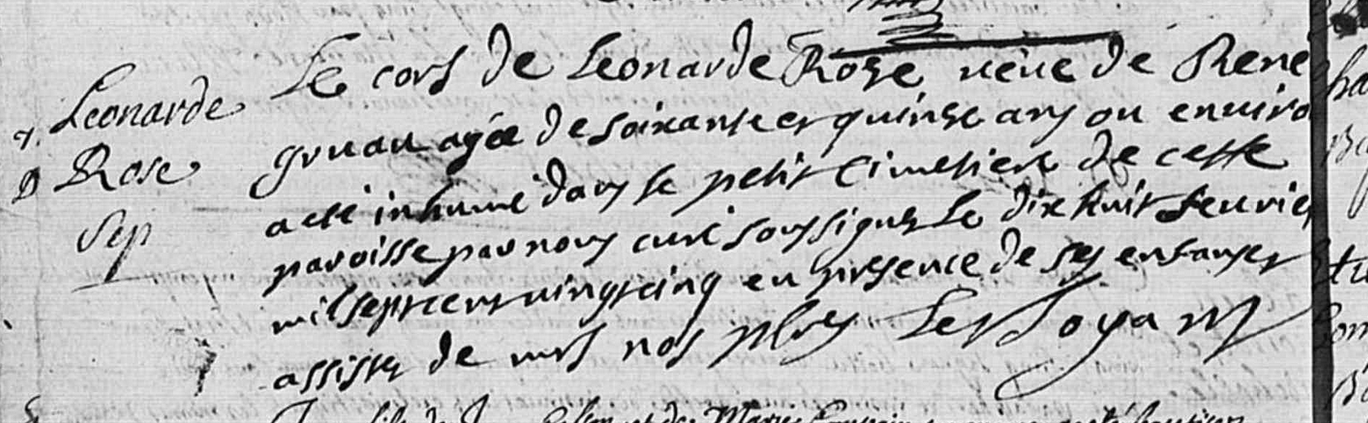 Leonarde
Rose
Sep
Le cors de Leonarde Roze veüe de Rene
gruau agée de soixante et quinze ans ou enviro
a esté inhumé dans le petit Cimetiere de cette
paroisse par nous curé soussigné le dix huit feuvrier
mil sept cent vingt cinq en presence de ses enfants et
assisté de mrs nos pbres
fils de
et de Marie